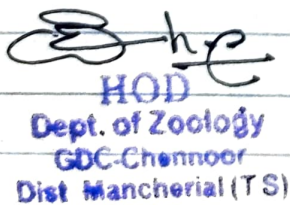 HOD
Dept. of Zoology
GDC-Chennoor
Dist Mancherial (T S)